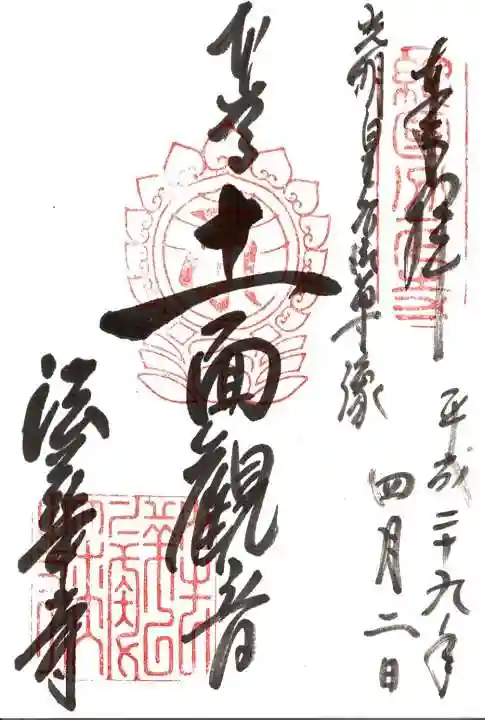 平成二十九年
四月二日
光明皇后御尊像
本尊
十一面觀音
法華寺